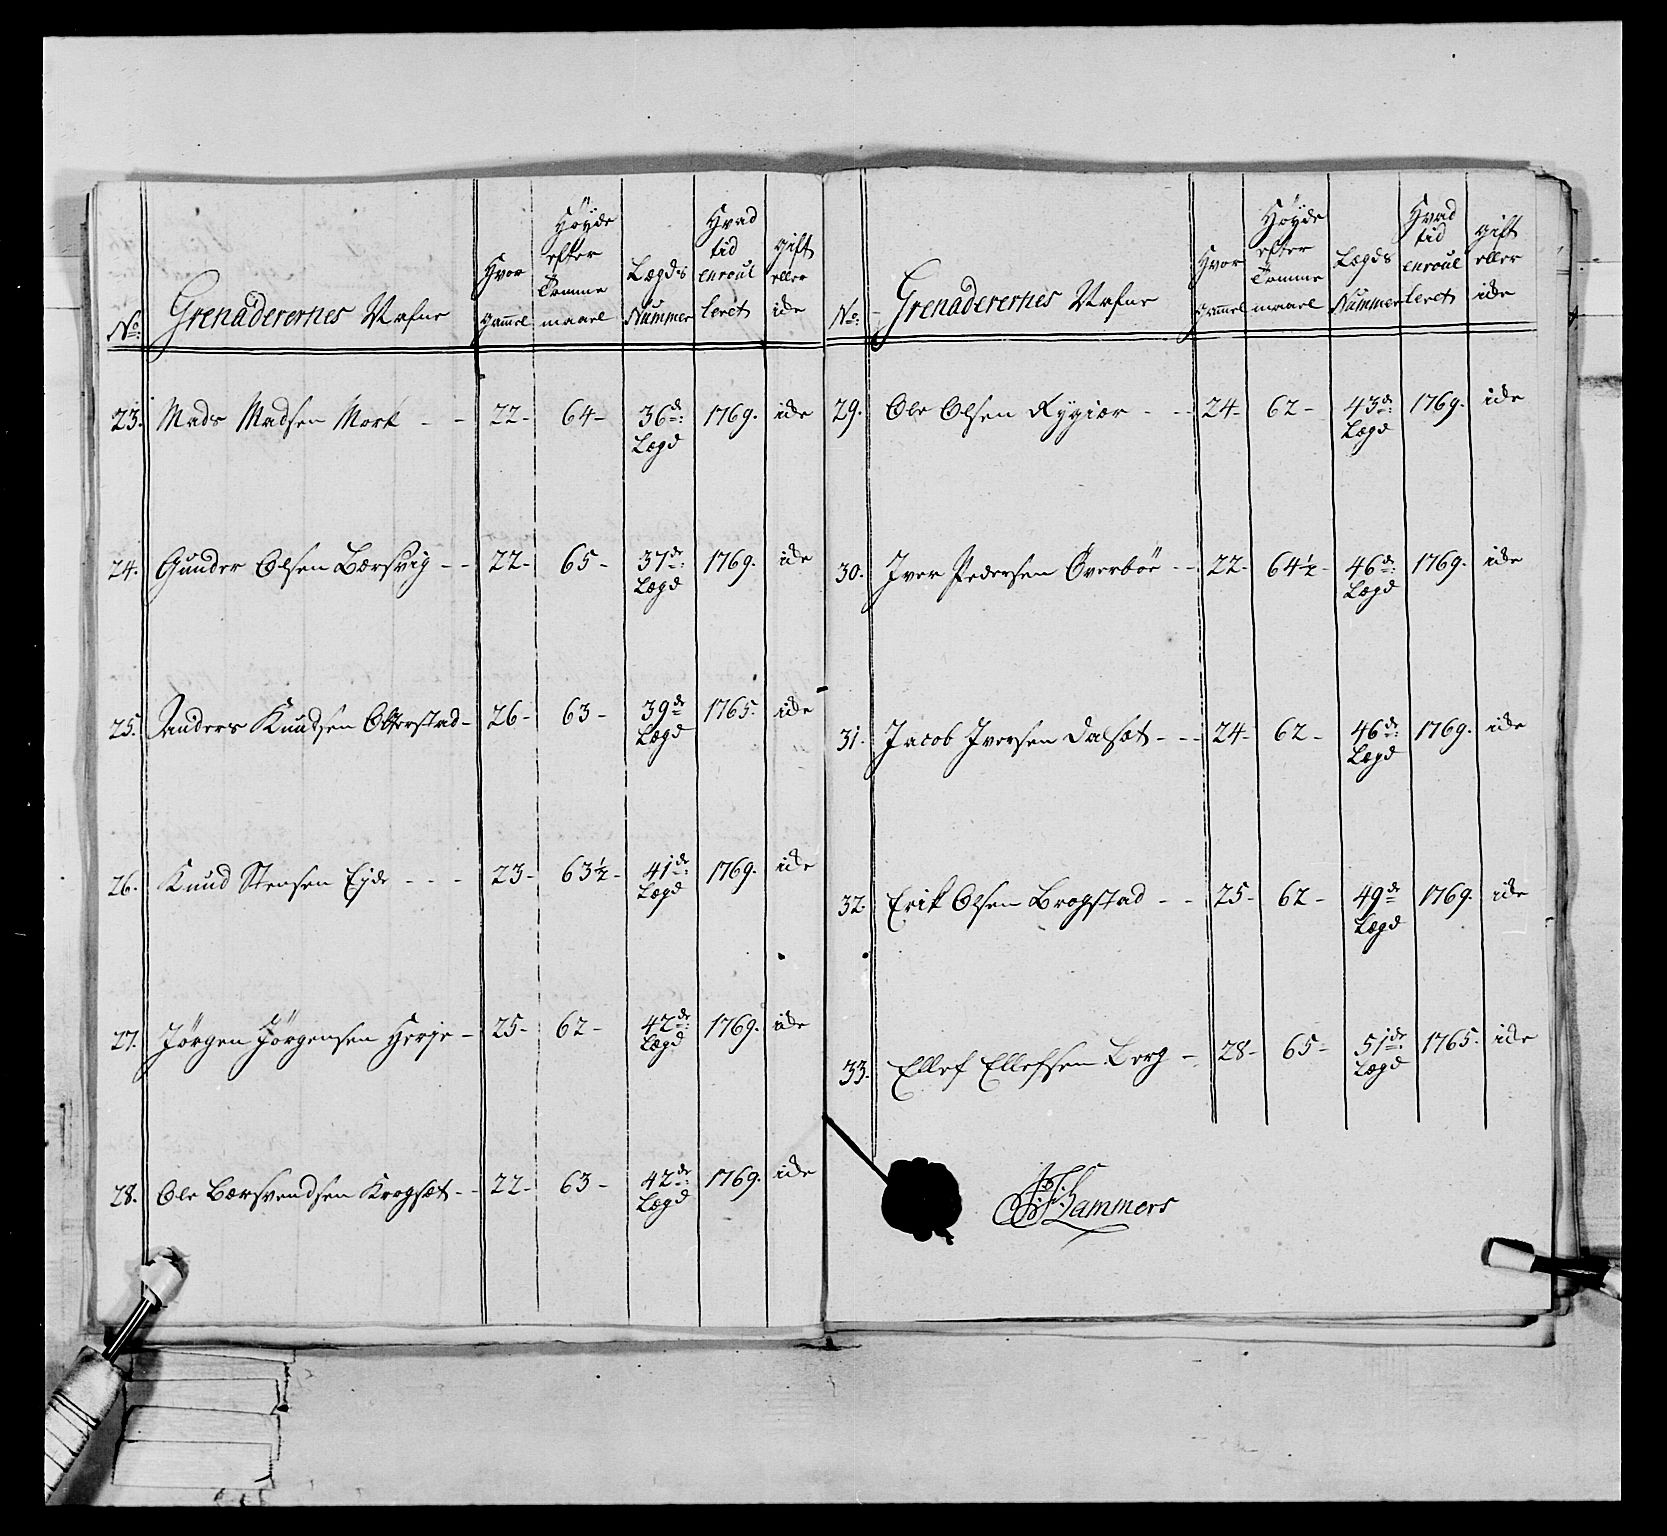 No: Grenaderernes Nafne Hvor gammel Höyde efter Tomme maael Lægds Nummer Hvad tid enroulleret gift eller ide
23. Mads Madsen Mork - - 22- 64- 36de: Lægd 1769. ide
24. Gunder Olsen Bærsvig - - 22- 65- 37de: Lægd 1769. ide
25. Anders Knudsen Otterstad- 26- 63- 39de Lægd 1765. ide
26. Knud Stensen Eyde - - - 23- 63½- 41de: Lægd 1769. ide
27. Jörgen Jörgensen Herje - 25- 62- 42de: Lægd 1769. ide
28. Ole Bærsvendsen Krogsæt - - 22- 63- 42de: Lægd 1769. ide
No: Grenaderernes Nafne Hvor gammel Höyde efter Tomme maael Lægds Nummer Hvad tid enroulleret gift eller ide
29. Ole Olsen Rygiær - - 24- 62- 43de: Lægd 1769. ide
30. Iver Pedersen Överböe - - 22- 64½- 46de: Lægd 1769. ide
31. Jacob Iversen Dalsæt - - - 24- 62- 46de: Lægd 1769. ide
32. Erik Olsen Brogstad - - 25- 62- 49de Lægd 1769. ide
33. Ellef Ellefsen Berg - 28- 65- 51de: Lægd 1765. ide
Lammers